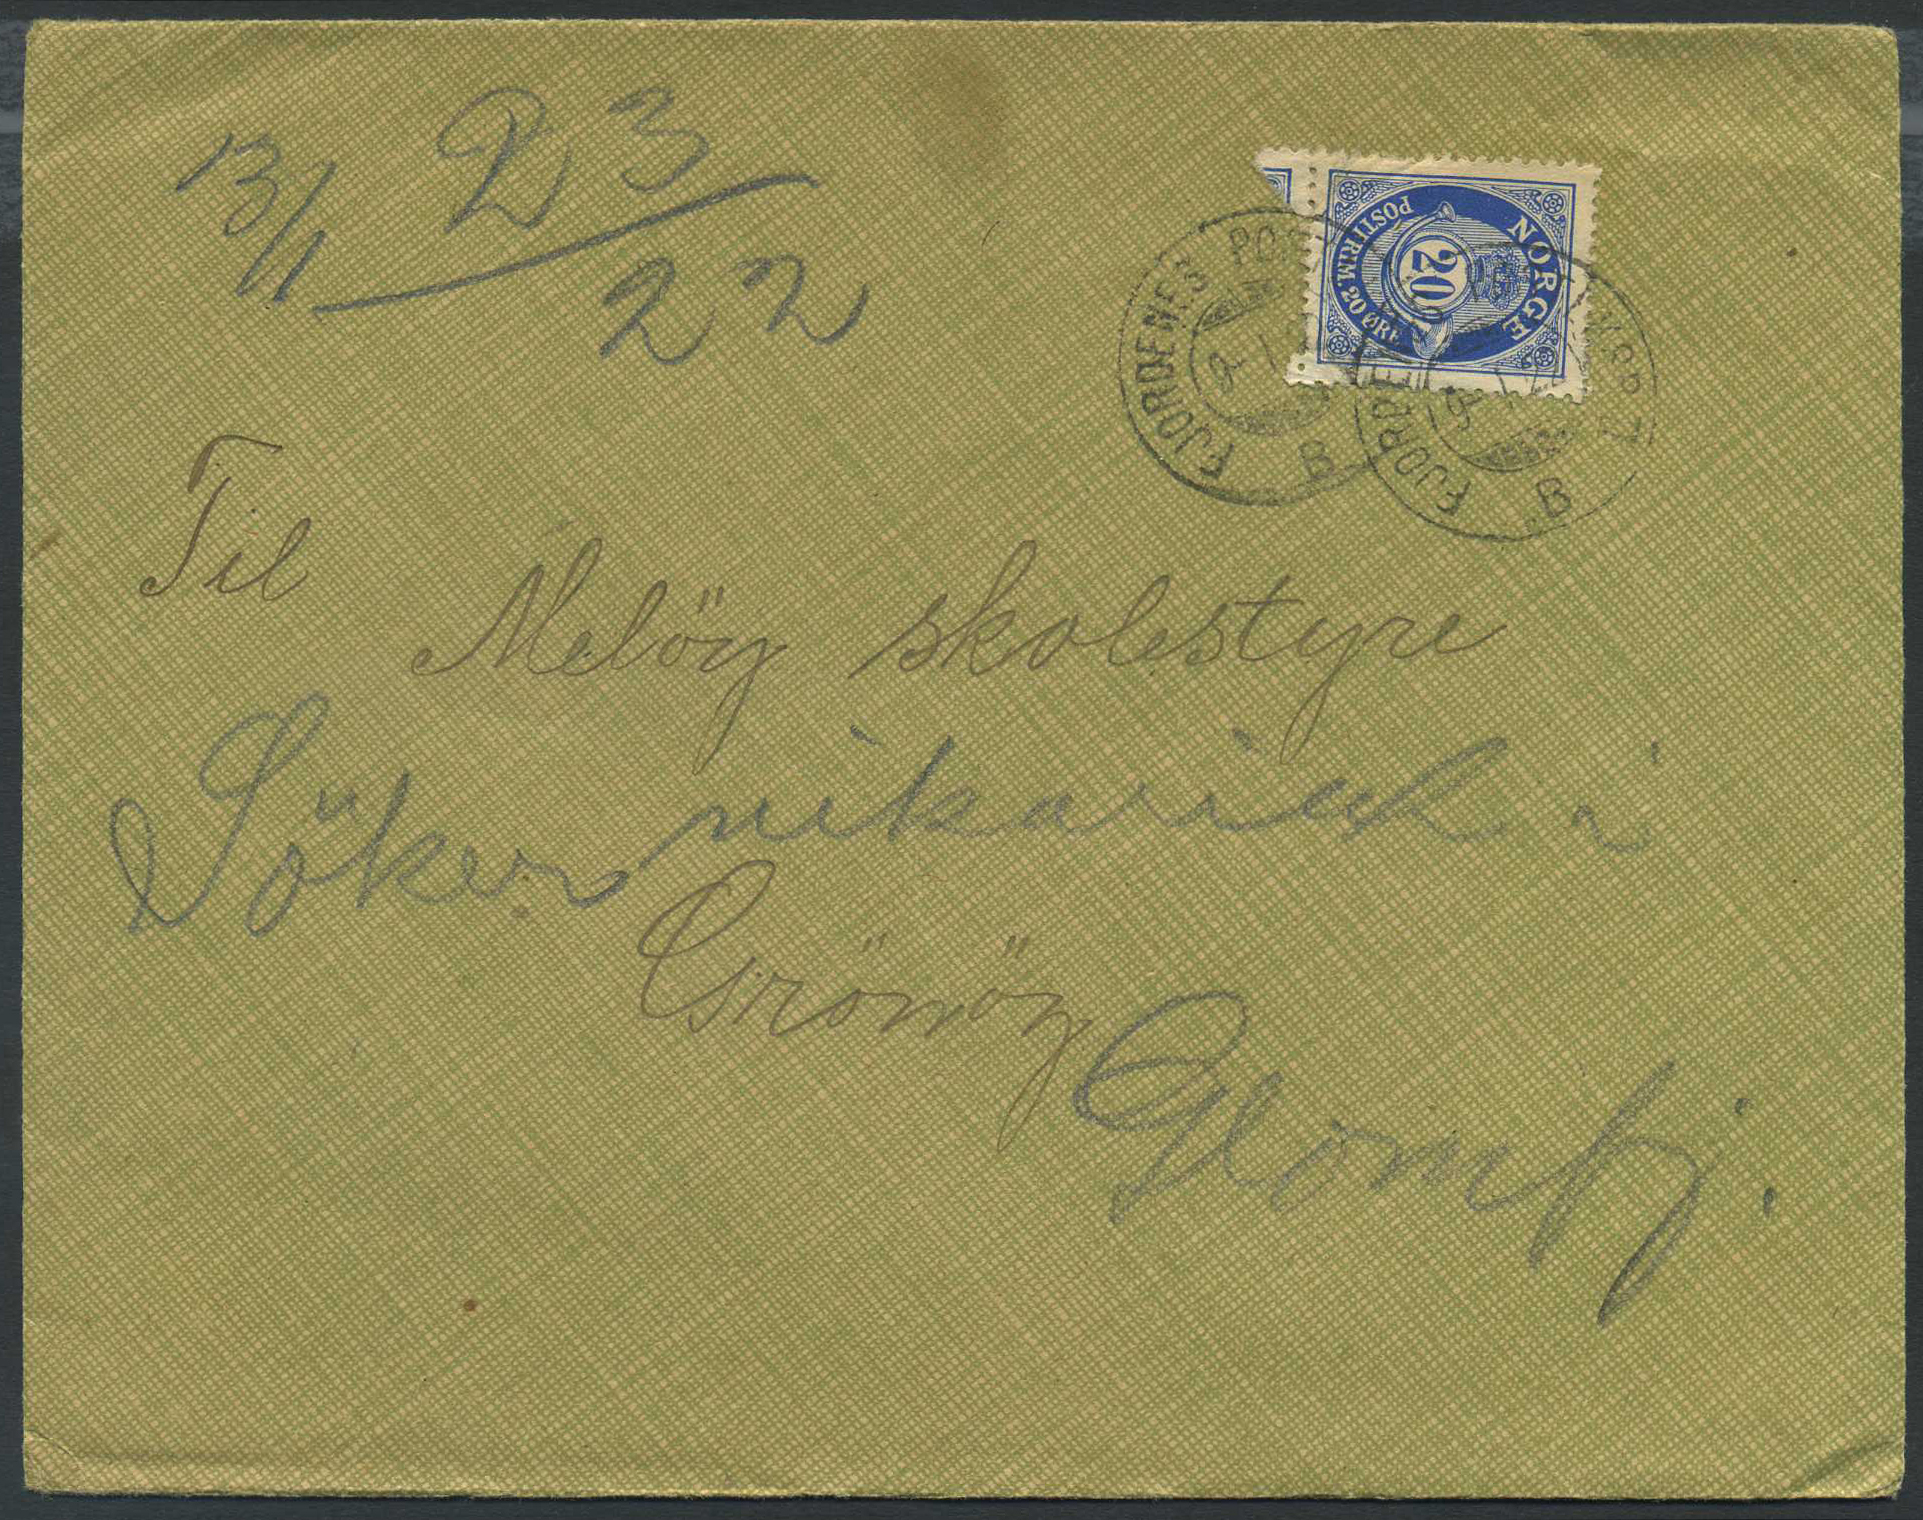 13/1 D 3
22
NORGE
20
POSTFRIM. 20 ØRE
FJORDENES POS
9 I
B
FJORDE
B
Til
Melöy skolestyre
Söker vikariat i
Grönöy
Glomfj.